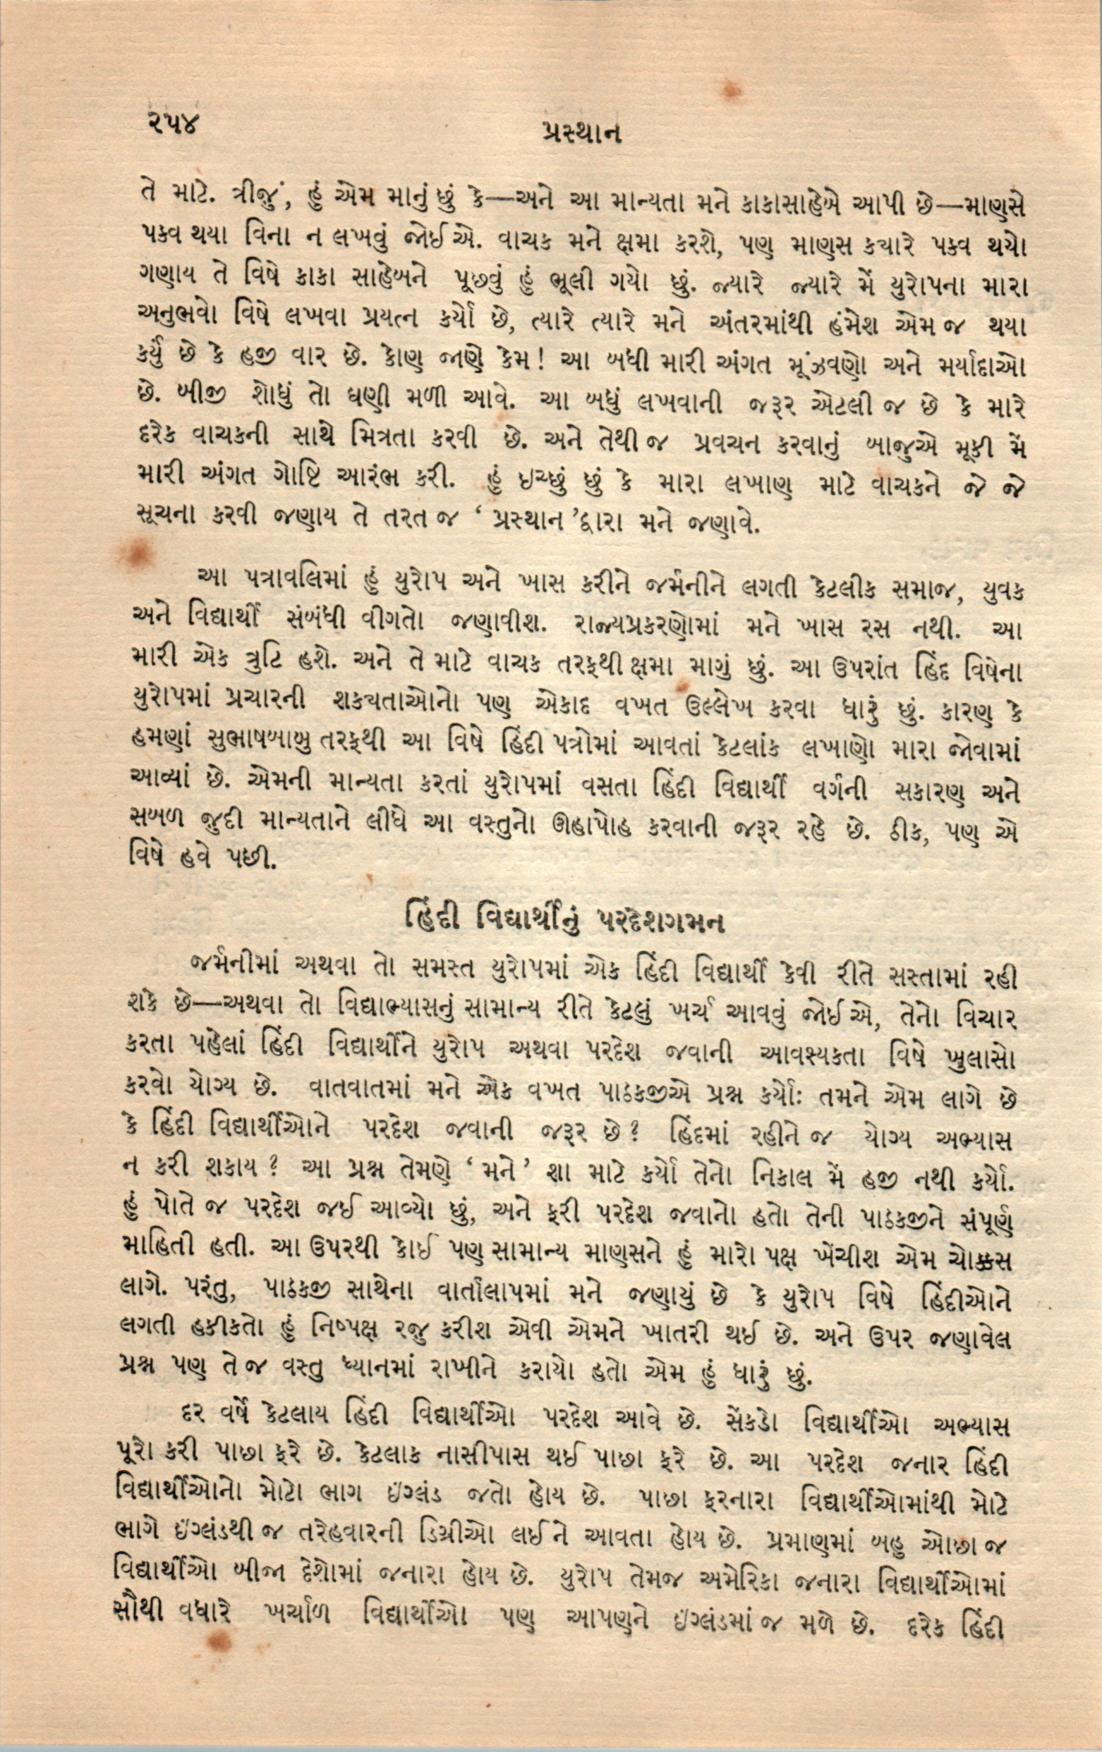 ૨૫૪
પ્રસ્થાન
તે માટે. ત્રીજું, હું એમ માનું છું કે—અને આ માન્યતા મને કાકાસાહેબે આપી છે—માણસે
પક્વ થયા વિના ન લખવું જોઈએ. વાચક મને ક્ષમા કરશે, પણ માણસ ક્યારે પક્વ થયો
ગણાય તે વિષે કાકા સાહેબને પૂછવું હું ભૂલી ગયો છું. જ્યારે જ્યારે મેં યુરોપના મારા
અનુભવો વિષે લખવા પ્રયત્ન કર્યો છે, ત્યારે ત્યારે મને અંતરમાંથી હંમેશ એમ જ થયા
કર્યું છે કે હજી વાર છે. કોણ જાણે કેમ! આ બધી મારી અંગત મૂંઝવણો અને મર્યાદાઓ
છે. બીજી શોધું તો ઘણી મળી આવે. આ બધું લખવાની જરૂર એટલી જ છે કે મારે
દરેક વાચકની સાથે મિત્રતા કરવી છે. અને તેથી જ પ્રવચન કરવાનું બાજુએ મૂકી મેં
મારી અંગત ગોષ્ટિ આરંભ કરી. હું ઇચ્છું છું કે મારા લખાણ માટે વાચકને જે જે
સૂચના કરવી જણાય તે તરત જ ‘પ્રસ્થાન’દ્વારા મને જણાવે.
આ પત્રાવલિમાં હું યુરોપ અને ખાસ કરીને જર્મનીને લગતી કેટલીક સમાજ, યુવક
અને વિદ્યાર્થી સંબંધી વીગતો જણાવીશ. રાજ્યપ્રકરણોમાં મને ખાસ રસ નથી. આ
મારી એક ત્રુટિ હશે. અને તે માટે વાચક તરફથી ક્ષમા માગું છું. આ ઉપરાંત હિંદ વિષેના
યુરોપમાં પ્રચારની શક્યતાઓનો પણ એકાદ વખત ઉલ્લેખ કરવા ધારું છું. કારણ કે
હમણાં સુભાષબાબુ તરફથી આ વિષે હિંદી પત્રોમાં આવતાં કેટલાંક લખાણો મારા જોવામાં
આવ્યાં છે. એમની માન્યતા કરતાં યુરોપમાં વસતા હિંદી વિદ્યાર્થી વર્ગની સકારણ અને
સબળ જુદી માન્યતાને લીધે આ વસ્તુનો ઊહાપોહ કરવાની જરૂર રહે છે. ઠીક, પણ એ
વિષે હવે પછી.
હિંદી વિદ્યાર્થીનું પરદેશગમન
જર્મનીમાં અથવા તો સમસ્ત યુરોપમાં એક હિંદી વિદ્યાર્થી કેવી રીતે સસ્તામાં રહી
શકે છે—અથવા તો વિદ્યાભ્યાસનું સામાન્ય રીતે કેટલું ખર્ચ આવવું જોઈએ, તેનો વિચાર
કરતા પહેલાં હિંદી વિદ્યાર્થીને યુરોપ અથવા પરદેશ જવાની આવશ્યકતા વિષે ખુલાસો
કરવો યોગ્ય છે. વાતવાતમાં મને એક વખત પાઠકજીએ પ્રશ્ન કર્યો: તમને એમ લાગે છે
કે હિંદી વિદ્યાર્થીઓને પરદેશ જવાની જરૂર છે? હિંદમાં રહીને જ યોગ્ય અભ્યાસ
ન કરી શકાય? આ પ્રશ્ન તેમણે ‘મને’ શા માટે કર્યો તેનો નિકાલ મેં હજી નથી કર્યો.
હું પોતે જ પરદેશ જઈ આવ્યો છું, અને ફરી પરદેશ જવાનો હતો તેની પાઠકજીને સંપૂર્ણ
માહિતી હતી. આ ઉપરથી કોઈ પણ સામાન્ય માણસને હું મારો પક્ષ ખેંચીશ એમ ચોક્કસ
લાગે. પરંતુ, પાઠકજી સાથેના વાર્તાલાપમાં મને જણાયું છે કે યુરોપ વિષે હિંદીઓને
લગતી હકીકતો હું નિષ્પક્ષ રજુ કરીશ એવી એમને ખાતરી થઈ છે. અને ઉપર જણાવેલ
પ્રશ્ન પણ તે જ વસ્તુ ધ્યાનમાં રાખીને કરાયો હતો એમ હું ધારું છું.
દર વર્ષે કેટલાય હિંદી વિદ્યાર્થીઓ પરદેશ આવે છે. સેંકડો વિદ્યાર્થીઓ અભ્યાસ
પૂરો કરી પાછા ફરે છે. કેટલાક નાસીપાસ થઈ પાછા ફરે છે. આ પરદેશ જનાર હિંદી
વિદ્યાર્થીઓનો મોટો ભાગ ઇંગ્લંડ જતો હોય છે. પાછા ફરનારા વિદ્યાર્થીઓમાંથી મોટે
ભાગે ઇંગ્લંડથી જ તરેહવારની ડિગ્રીઓ લઈને આવતા હોય છે. પ્રમાણમાં બહુ ઓછા જ
વિદ્યાર્થીઓ બીજા દેશોમાં જનારા હોય છે. યુરોપ તેમજ અમેરિકા જનારા વિદ્યાર્થીઓમાં
સૌથી વધારે ખર્ચાળ વિદ્યાર્થીઓ પણ આપણને ઇંગ્લંડમાં જ મળે છે. દરેક હિંદી